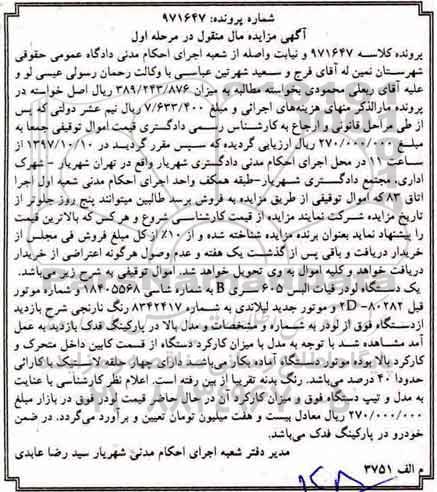 شماره پرونده: ۹۷۱۶۴۷
آگهی مزایده مال منقول در مرحله اول
پرونده کلاسه ۹۷۱۶۴۷ و نیابت واصله از شعبه اجرای احکام مدنی دادگاه عمومی حقوقی
شهرستان نمین له آقای فرج و سعید شهرتین عباسی با وکالت رحمان رسولی عیسی لو و
علیه آقای ربعلی محمودی بخواسته مطالبه به میزان ۳۸۹/۲۴۳/۸۷۶ ریال اصل خواسته در
پرونده مارالذکر منهای هزینه‌های اجرائی و مبلغ ۷/۶۳۳/۴۰۰ ریال نیم عشر دولتی که پس
از طی مراحل قانونی و ارجاع به کارشناس رسمی دادگستری قیمت اموال توقیفی جمعا به
مبلغ ۲۷۰/۰۰۰/۰۰۰ ریال ارزیابی گردیده که سپس مقرر گردید در ۱۳۹۷/۱۰/۱۰ از
ساعت ۱۱ در محل اجرای احکام مدنی دادگستری شهریار واقع در تهران شهریار - شهرک
اداری، مجتمع دادگستری شهریار-طبقه همکف واحد اجرای احکام مدنی شعبه اول اجرا
اتاق ۸۲ که اموال توقیفی از طریق مزایده به فروش برسد طالبین میتوانند پنج روز جلوتر از
تاریخ مزایده شرکت نمایند مزایده از قیمت کارشناسی شروع و هر کس که بالاترین قیمت
را پیشنهاد نماید بعنوان برنده مزایده شناخته شده و از ۱۰٪ از کل مبلغ فروش فی مجلس از
خریدار دریافت و باقی پس از گذشت یک هفته و عدم وصول هرگونه اعتراضی از خریدار
دریافت خواهد و کلیه اموال به وی تحویل خواهد شد. اموال توقیفی به شرح زیر می‌باشد.
یک دستگاه لودر فیات الیس ۶۰۵ سری B به شماره شاسی ۱۸۴۰۵۵۶۸ و شماره موتور
قبل ۸۰۲۸۲–2D و موتور جدید لیلاندی به شماره ۸۳۲۲۴۱۷ رنگ نارنجی شرح بازدید
ازدستگاه فوق از لودر به شماره و مشخصات و مدل بالا در پارکینگ فدک بازدید به عمل
آمد مشاهده شد با توجه به مدل با میزان کارکرد دستگاه از قسمت کابین داخل متحرک و
کارکرد بالا بود موتور دستگاه آماده بکار می‌باشند دارای چهار حلقه لاستیک با کارائی
حدودا ۴۰ درصد می‌باشد. رنگ بدنه تقریبا از بین رفته است. اعلام نظر کارشناسی با عنایت
به مدل و تیپ دستگاه فوق و میزان کارکرد آن در حال حاضر قیمت لودر فوق در بازار مبلغ
۲۷۰/۰۰۰/۰۰۰ ریال معادل بیست و هفت میلیون تومان تعیین و برآورد می‌گردد. در ضمن
خودرو در پارکینگ فدک می‌باشد.
مدیر دفتر شعبه اجرای احکام مدنی شهریار سید رضا عابدی
م الف ۳۷۵۱